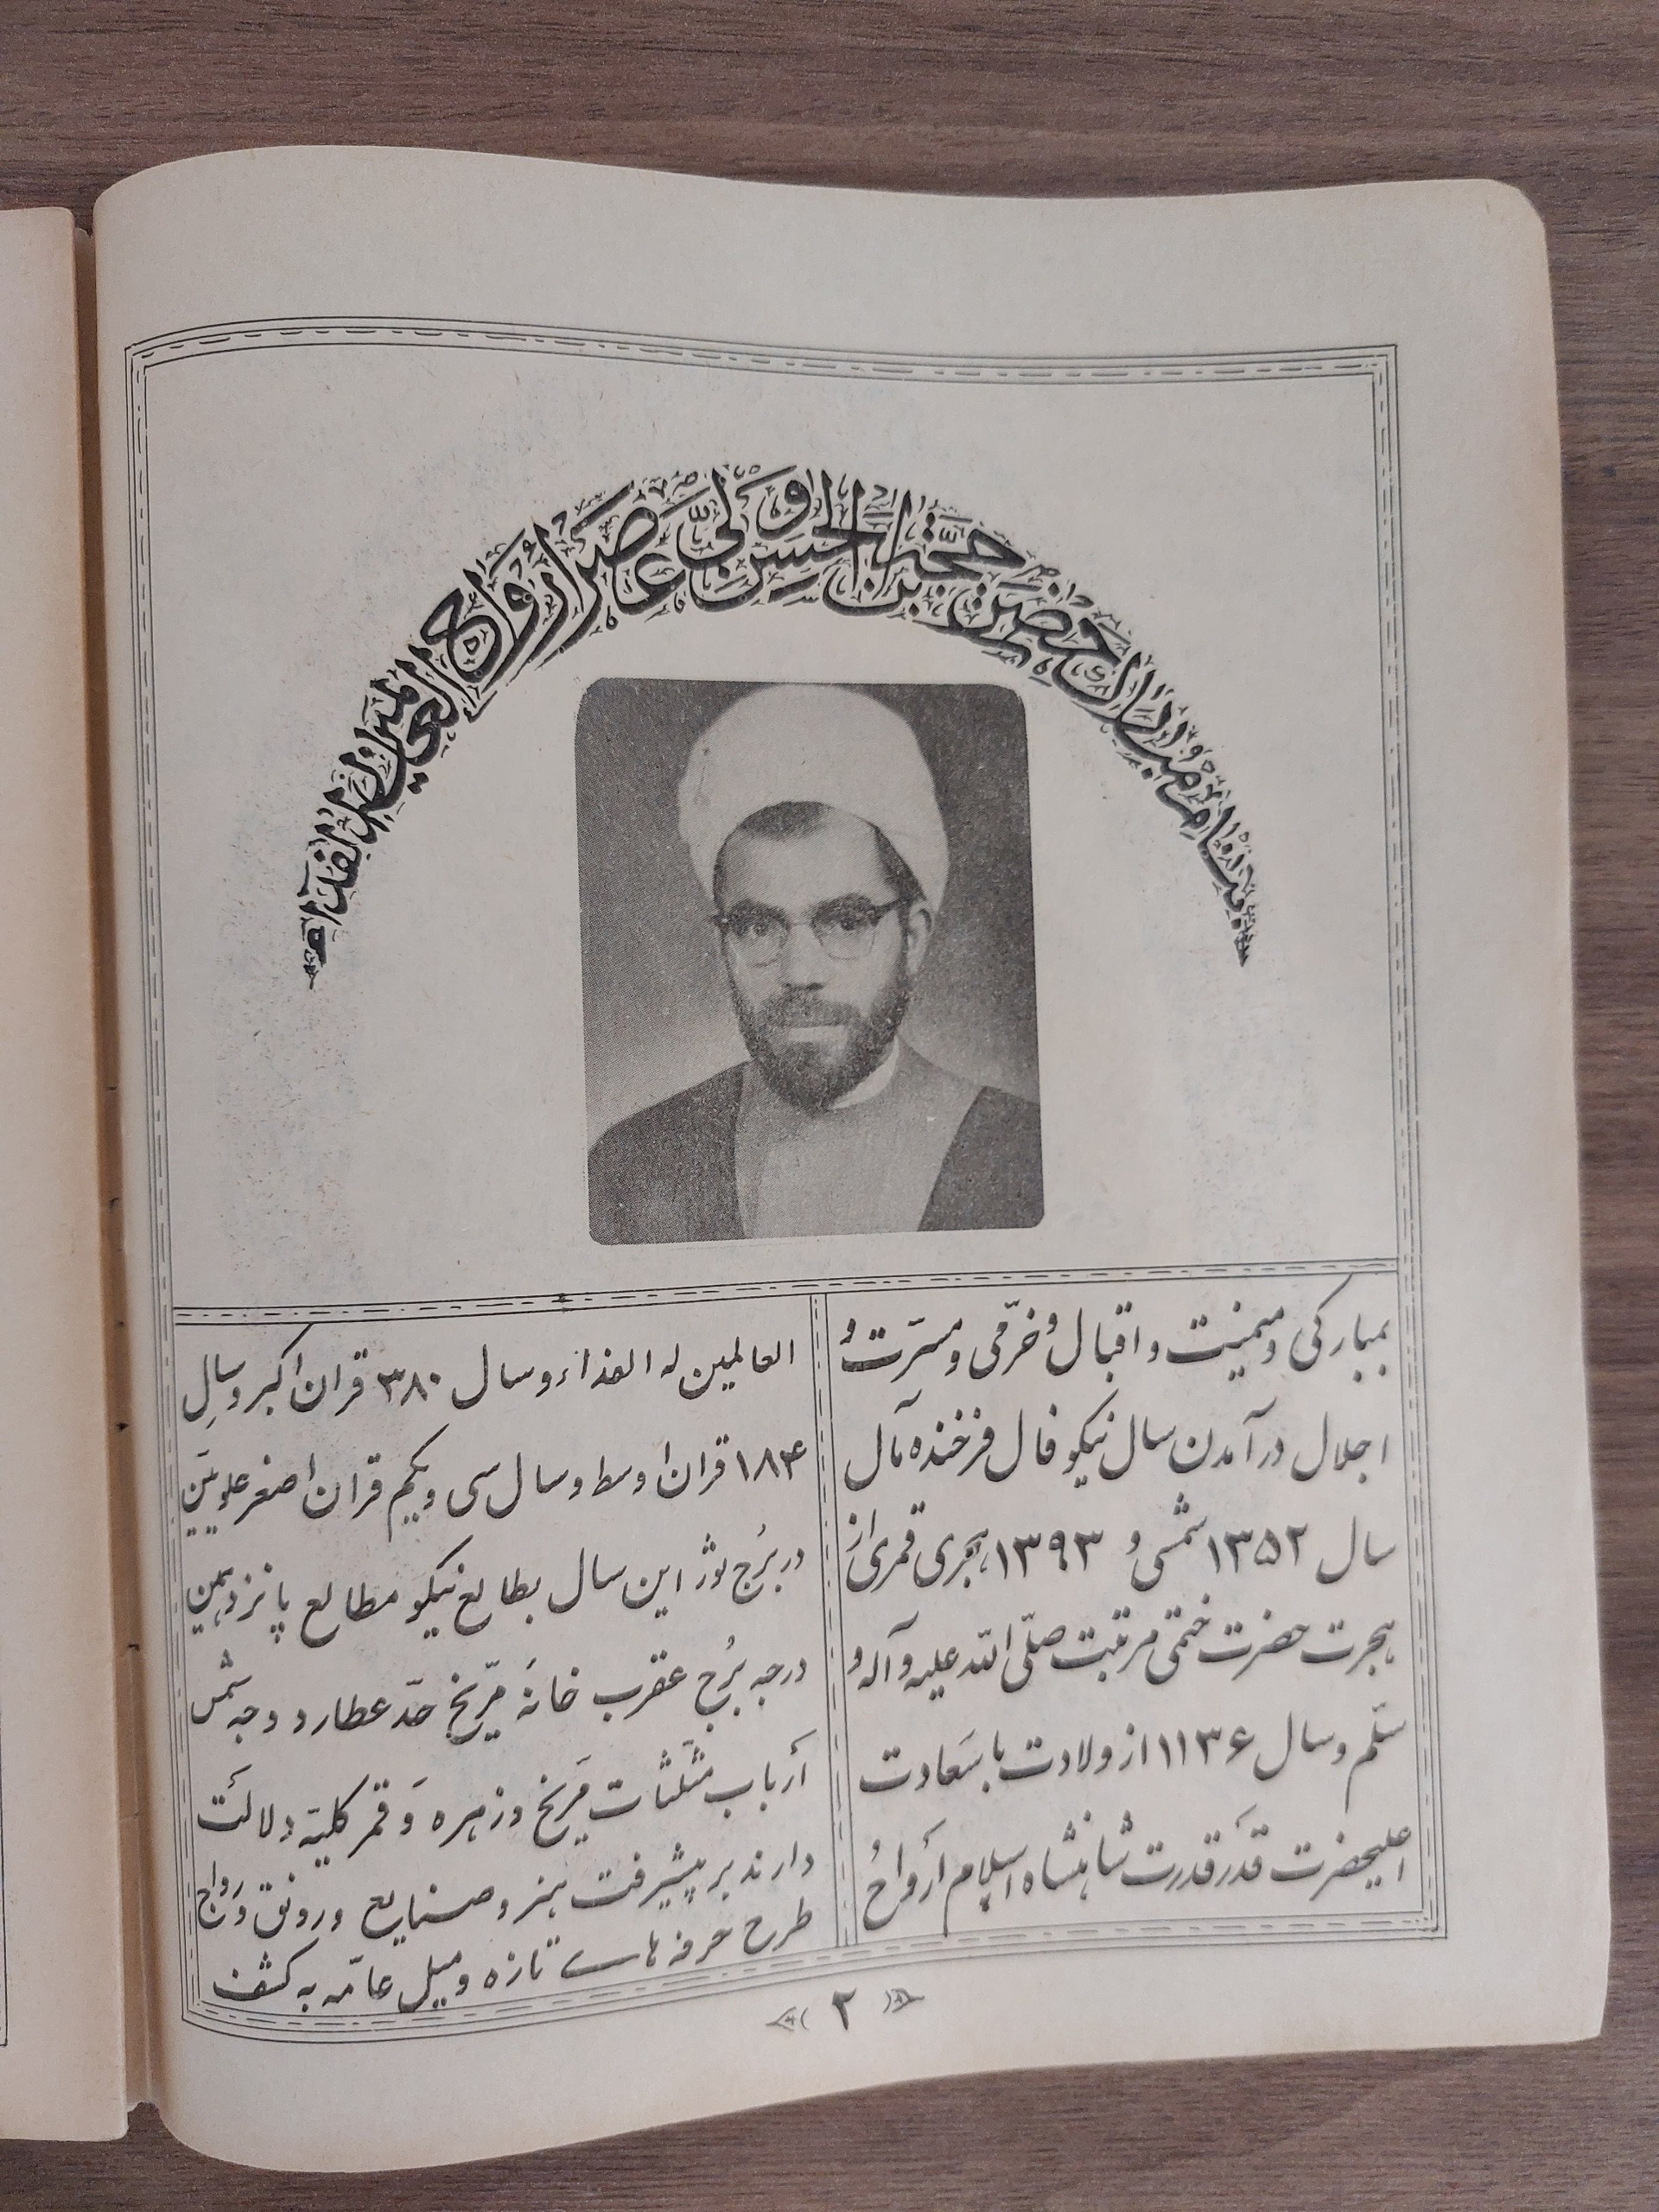 بنام مبارک حضرت حجّة بن الحسن ولیّ عصر ارواح العالمین له الفداء
بمبارکی و میمنت و اقبال و خرّمی و مسرّت و
اجلال درآمدن سال نیکو فال فرخنده مآل
سال ۱۳۵۲ شمسی و ۱۳۹۳ هجری قمری از
هجرت حضرت ختمی مرتبت صلّی اللّه علیه و آله و
سلّم و سال ۱۱۳۶ از ولادت با سَعادت
اعلیحضرت قَدَر قدرت شاهنشاه اسلام أرواحُ
العالمین له الفذاء و سال ۳۸۰ قران اکبر و سالِ
۱۸۴ قران اوسط و سال سی و یکم قران اصغر علویّین
در بُرج ثور این سال بطالع نیکو مطالع پانزدهمین
درجه بُرج عقرب خانهٔ مرّیخ حدّ عطارد وجه شمس
أرباب مثلّثات مرّیخ و زهره وَ قمر کلیّة دلالَت
دارند بر پیشرفت هنر و صنایع و رونق و رواج
طرح حرفه های تازه و میل عامّه به کشف
۲